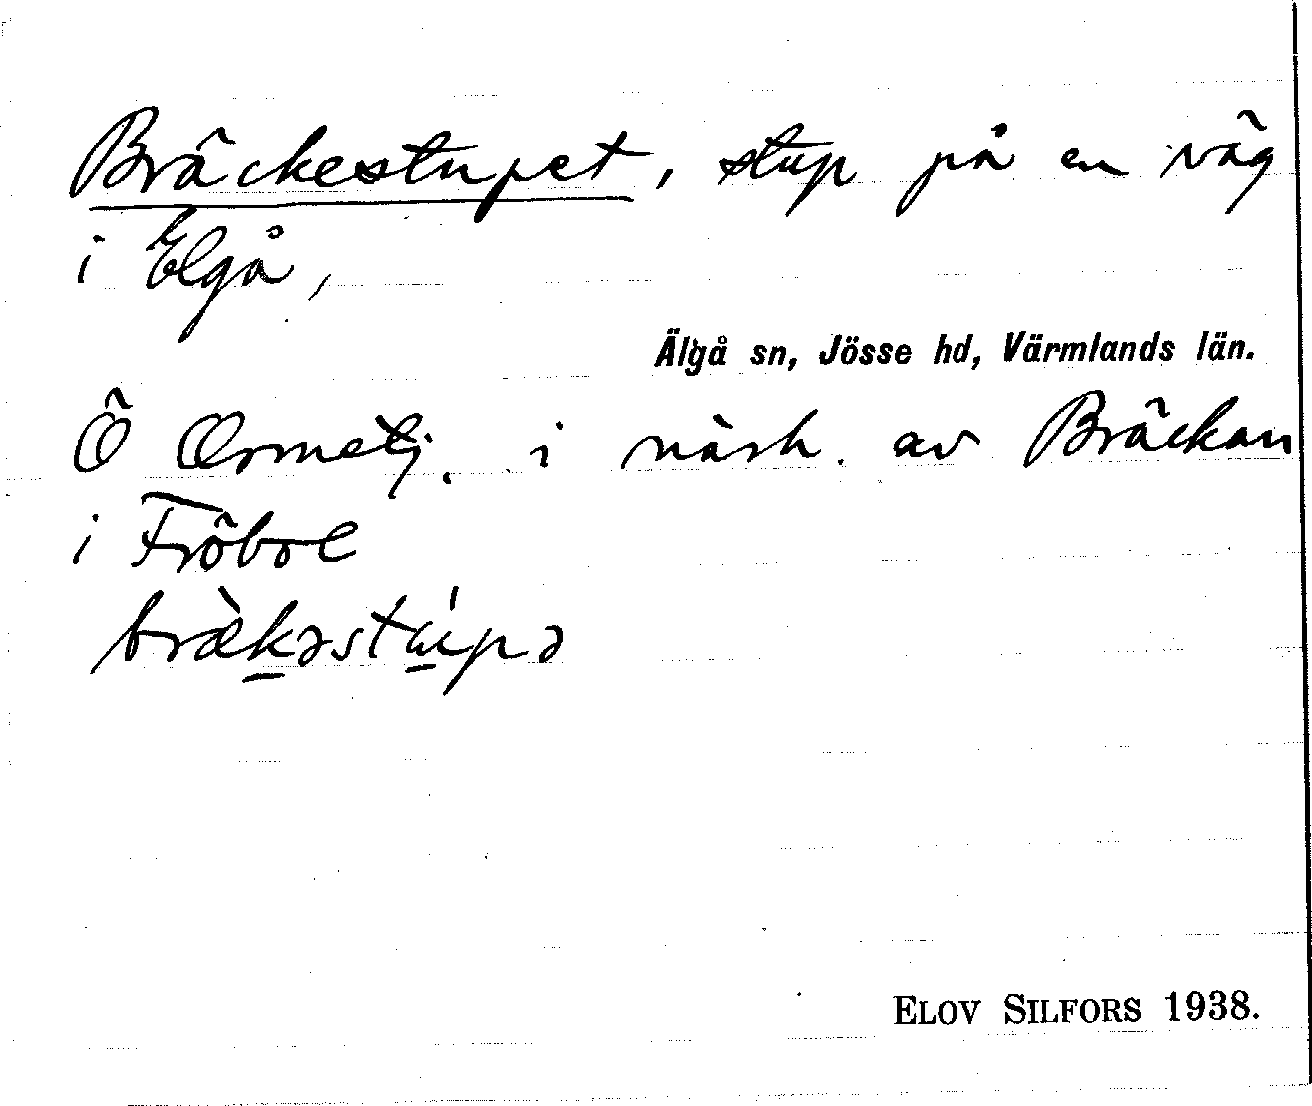 Bräckestupet, stup på en väg
i Elgå,
Älgå sn, Jösse hd, Värmlands län.
Ö Ormetj. i närh. av Bräckan
i Fröbol
bræ̀kəstúpə
ELOV SILFORS 1938.